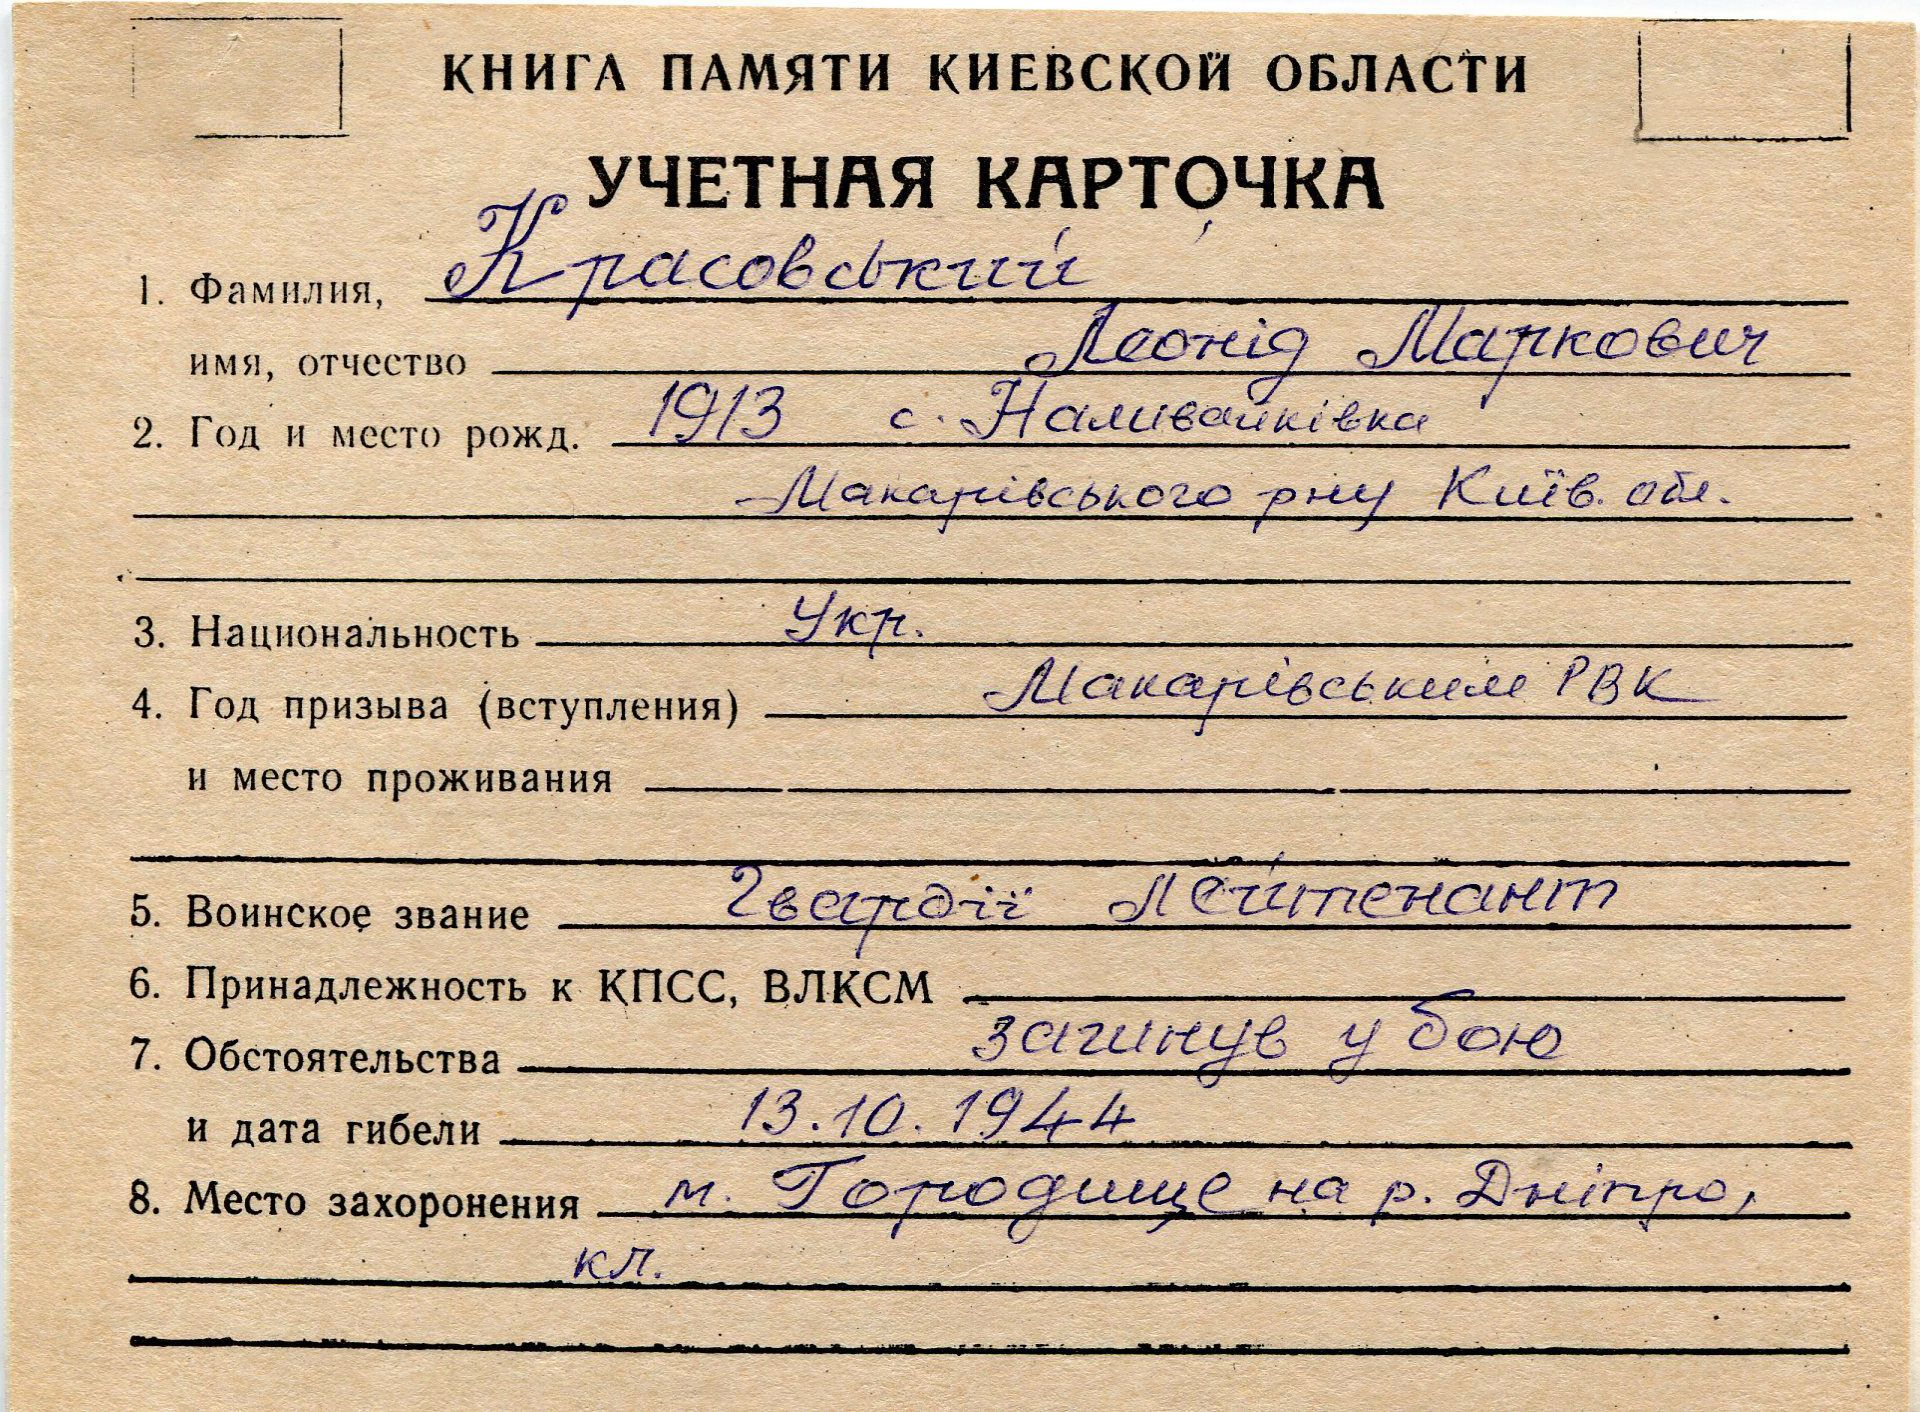 КНИГА ПАМЯТИ КИЕВСКОЙ ОБЛАСТИ
УЧЕТНАЯ КАРТОЧКА
1. Фамилия, Красовський
имя, отчество Леонід Маркович
2. Год и место рожд. 1913 с. Наливайківка
Макарівського рну Київ. обл.
3. Национальность Укр.
4. Год призыва (вступления) Макарівським РВК
и место проживания
5. Воинское звание Гвардії Лейтенант
6. Принадлежность к КПСС, ВЛКСМ
7. Обстоятельства загинув у бою
и дата гибели 13.10.1944
8. Место захоронения м. Городище на р. Дніпро,
кл.